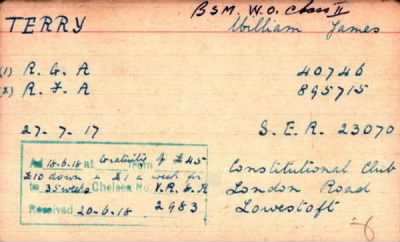 B.S.M. W.O. Class II
TERRY William James
(1) R. G. A 40746
(2) R. F. A 895715
27-7-17 S.E.R. 23070
Ad 18-6-18 at Gratuity of £45 from
£10 down & £1 a week for
to 35 weeks Chelsea No. V.R.G.A
Received 20-6-18 2983
Constitutional Club
London Road
Lowestoft